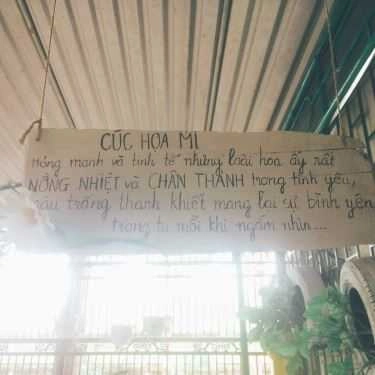 CÚC HỌA MI
mỏng manh và tinh tế nhưng loài hoa ấy rất
NỒNG NHIỆT và CHÂN THÀNH trong tình yêu,
màu trắng thanh khiết mang lại sự bình yên
trong ta mỗi khi ngắm nhìn...